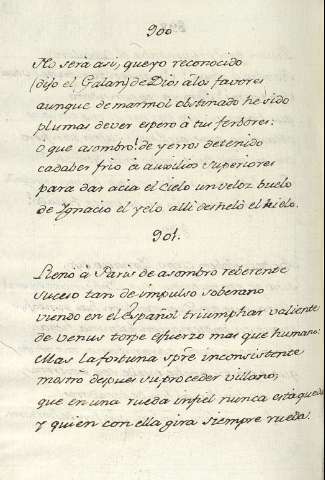 900
No será asi, que yo reconocido
(dijo el Galan) de Dios â los favores
aunque de marmol obstinado he sido
plumas dever espero â tus ferbores:
O que asombro! de yerros detenido
cadaber frio â auxilios superiores
para dar acia el cielo un veloz buelo
de Ygnacio el yelo alli deshelô el hielo.
901.
Llenó â Paris de asombro reberente
suceso tan de impulso soberano
viendo en el Español triumphar valiente
de venus torpe esfuerzo mas que humano:
Mas la fortuna spre inconsistente
mostrô despues su proceder villano,
que en una rueda infiel nunca está queda
y quien con ella gira siempre rueda.